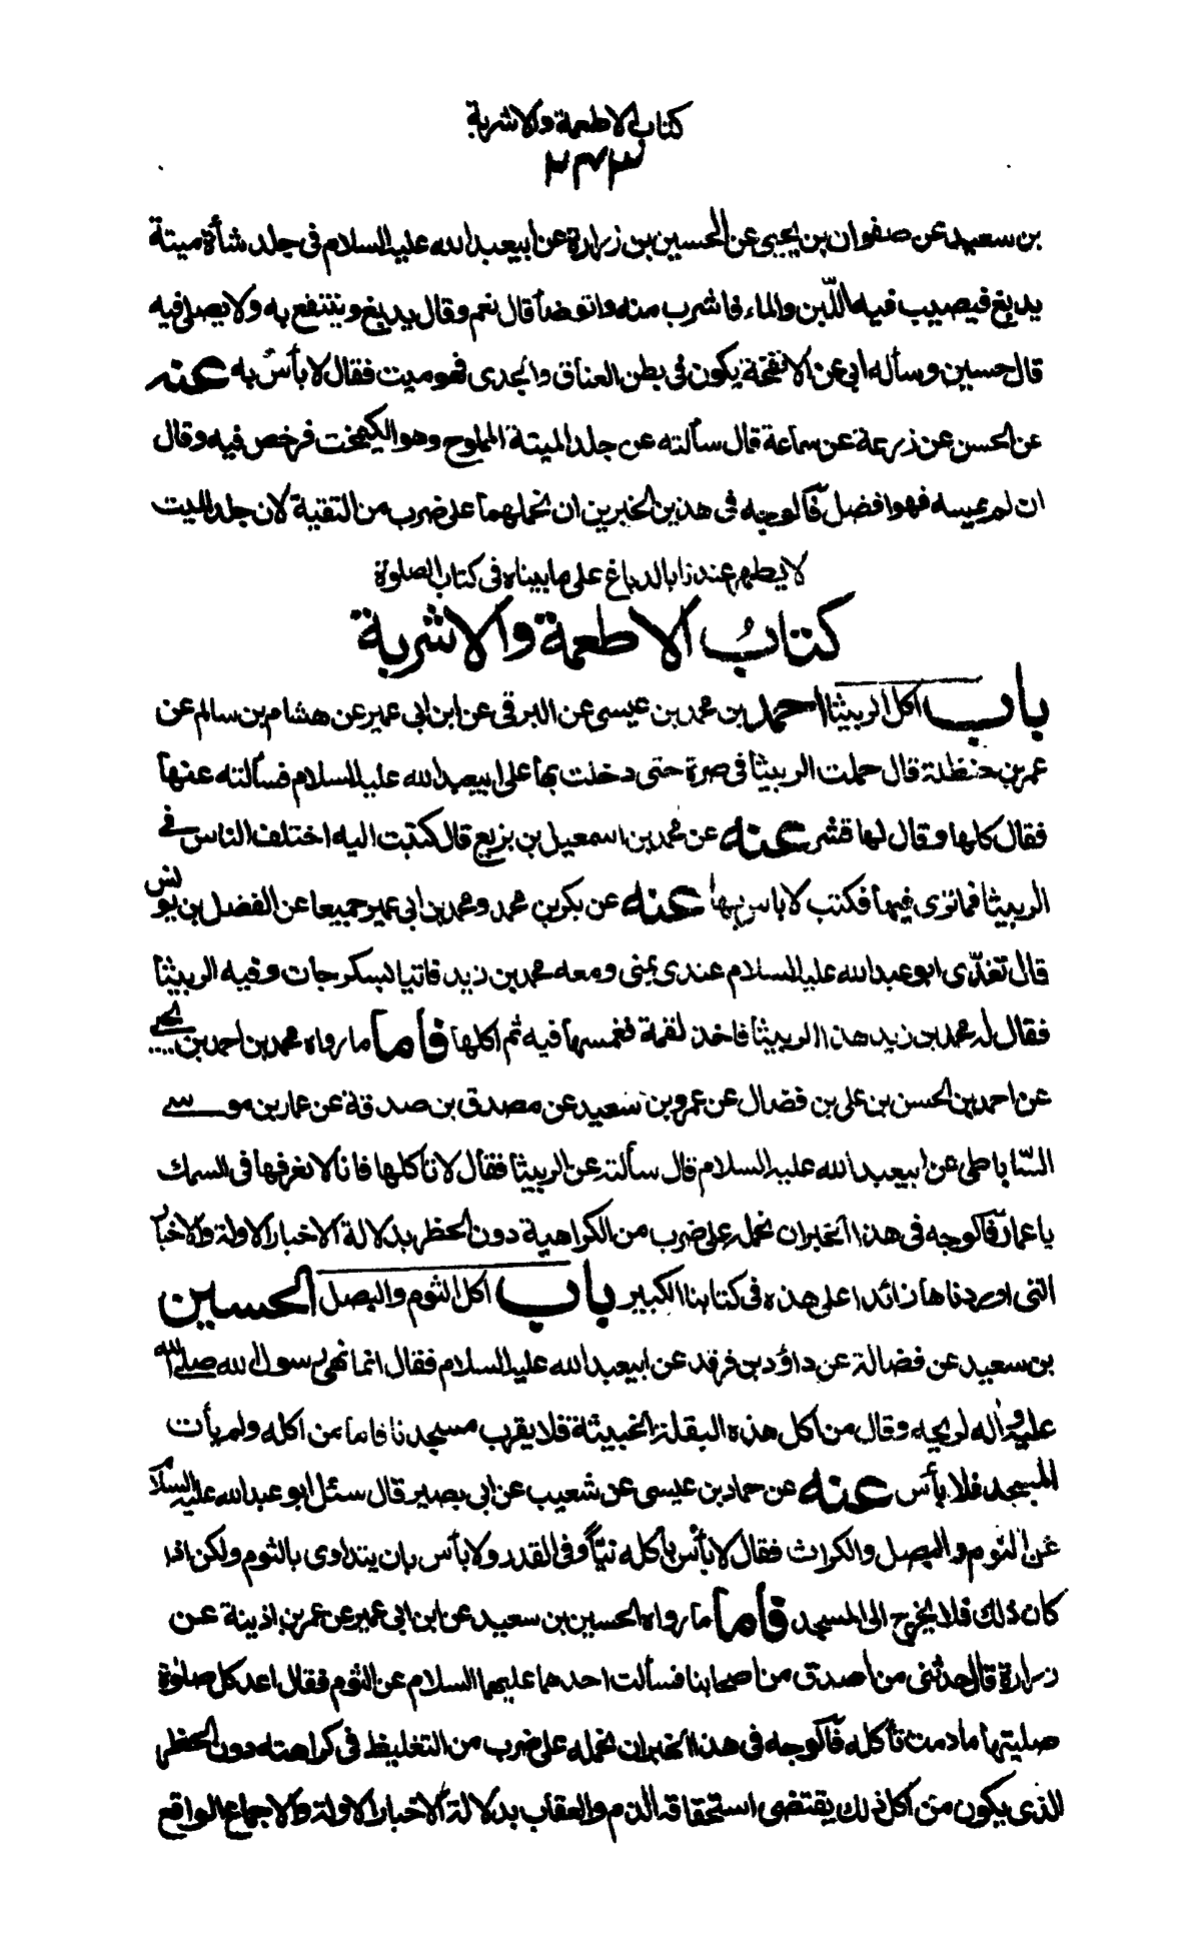 كتاب الاطعمة والاشربة
٣٤٣
بن سعيد عن صفوان بن يحيى عن الحسين بن زرارة عن ابيعبد الله عليه السلام فى جلد شأة ميتة
يدبغ فيصيب فيه اللّبن والماء فاشرب منه واتوضأ قال نعم وقال يدبغ وينتفع به ولا يصلى فيه
قال حسين وسأله ابى عن الانفحة يكون فى بطن العناق والجدى فهو ميت فقال لا بأس به عنه
عن الحسن عن زرعة عن سماعة قال سألته عن جلد الميتة المملوح وهو الكيمخت فرخص فيه وقال
ان لم يمسه فهو افضل فالوجه فى هذين الخبرين ان نحملهما على ضرب من التقية لان جلد الميت
لا يطهر عندنا بالدباغ على ما بيناه فى كتاب الصلوة
كتابُ الاطعمة والاشربة
باب اكل الربيثا احمد بن محمد بن عيسى عن البرقى عن ابن ابى عمير عن هشام بن سالم عن
عمر بن حنظلة قال حملت الربيثا فى صرة حتى دخلت بها على ابيعبد الله عليه السلام فسألته عنها
فقال كلها وقال لها قشر عنه عن محمد بن اسمعيل بن بزيع قال كتبت اليه اختلف الناس فے
الربيثا فما ترى فيها فكتب لا باس بها عنه عن بكر بن محمد ومحمد بن ابى عمير جميعا عن الفضل بن يونس
قال تغدّى ابو عبد الله عليه السلام عندى بمنى ومعه محمد بن زيد فاتيا بسكرجات وفيه الربيثا
فقال له محمد بن زيد هذا الربيثا فاخذ لقمة فغمسها فيه ثم اكلها فاما ما رواه محمد بن احمد بن يحيے
عن احمد بن الحسن بن على بن فضال عن عمرو بن سعيد عن مصدق بن صدقة عن عمار بن موسے
السّاباطى عن ابيعبد الله عليه السلام قال سألته عن الربيثا فقال لا تأكلها فانا لا نعرفها فى السمك
يا عمار فالوجه فى هذا الخبر ان نحمله على ضرب من الكراهية دون الحظر بدلالة الاخبار الاولة والاخبار
التى اوردناها زائدا على هذه فى كتابنا الكبير باب اكل الثوم والبصل الحسين
بن سعيد عن فضالة عن داؤد بن فرقد عن ابيعبد الله عليه السلام فقال انما نهى رسول الله صلى الله
عليه واله لريحه وقال من اكل هذه البقلة الخبيثة فلا يقرب مسجدنا فاما من اكله ولم يأت
المسجد فلا بأس عنه عن حماد بن عيسى عن شعيب عن ابى بصير قال سئل ابو عبد الله عليه السلام
عن الثوم والبصل والكراث فقال لا بأس باكله نيّاً وفى القدر ولا بأس بان يتداوى بالثوم ولكن اذا
كان ذلك فلا يخرج الى المسجد فاما ما رواه الحسين بن سعيد عن ابن ابى عمير عن عمر بن اذينة عن
زرارة قال حدثنى من اصدق من اصحابنا فسألت احدهما عليهما السلام عن الثوم فقال اعد كل صلوة
صليتها ما دمت تأكله فالوجه فى هذا الخبر ان نحمله على ضرب من التغليظ فى كراهته دون الحظر
الذى يكون من اكل ذلك يقتضى استحقاقه الذم والعقاب بدلالة الاخبار الاولة والاجماع الواقع